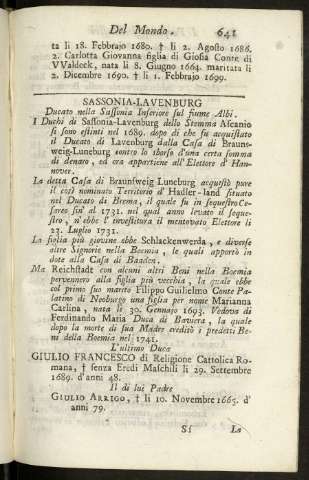 Del Mondo. 641
ta li 18. Febbrajo 1680. † li 2. Agosto 1686.
2. Carlotta Giovanna figlia di Giosia Conte di
VValdeck, nata li 8. Giugno 1664. maritata li
2. Dicembre 1690. † li 1. Febbrajo 1699.
SASSONIA-LAVENBURG
Ducato nella Sassonia Inferiore sul fiume Albi.
I Duchi di Sassonia-Lavenburg dello Stemma Ascanio
si sono estinti nel 1689. dopo di che fu acquistato
il Ducato di Lavenburg dalla Casa di Brauns-
weig-Luneburg contro lo sborso d'una certa somma
di denaro, ed ora appartiene all'Elettore d'Han-
nover.
La detta Casa di Braunsweig Luneburg acquistò pure
il così nominato Territorio d'Hadler-land situato
nel Ducato di Brema, il quale fu in sequestro Ce-
sareo sin' al 1731. nel qual anno levato il seque-
stro, n'ebbe l'investitura il mentovato Elettore li
23. Luglio 1731.
La figlia più giovane ebbe Schlackenwerda, e diverse
altre Signorie nella Boemia, le quali apportò in
dote alla Casa di Baaden.
Ma Reichstadt con alcuni altri Beni nella Boemia
pervennero alla figlia più vecchia, la quale ebbe
col primo suo marito Filippo Guilielmo Conte Pa-
latino di Neoburgo una figlia per nome Marianna
Carlina, nata li 30. Gennajo 1693. Vedova di
Ferdinando Maria Duca di Baviera, la quale
dopo la morte di sua Madre ereditò i predetti Be-
ni della Boemia nel 1741.
L'ultimo Duca
GIULIO FRANCESCO di Religione Cattolica Ro-
mana, † senza Eredi Maschili li 29. Settembre
1689. d'anni 48.
Il di lui Padre
GIULIO ARRIGO, † li 10. Novembre 1665. d'
anni 79.
Sf La